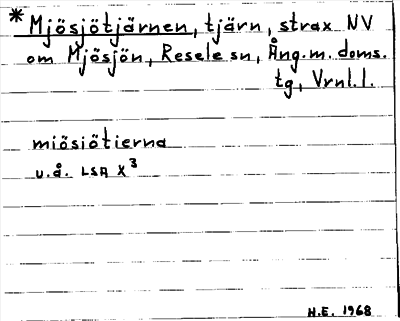 * Mjösjötjärnen, tjärn, strax NV
om Mjösjön, Resele sn, Ång.m. doms.
tg, Vrnl.l.
miösiötierna
u.å. LSA X³
H.E. 1968